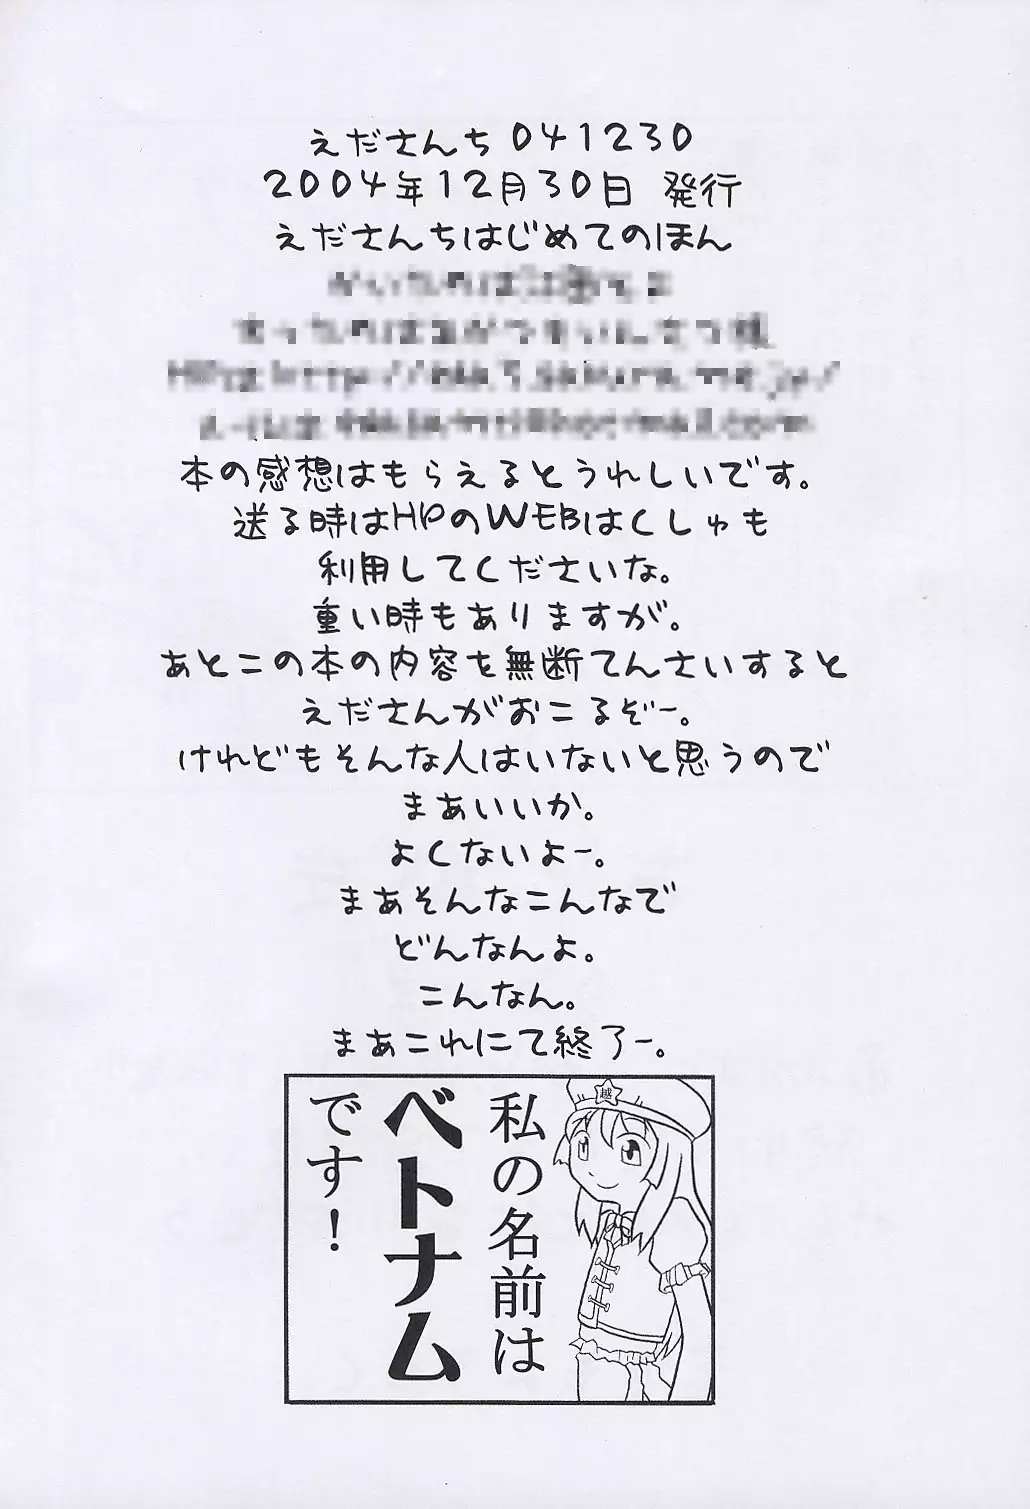 えださんち041230
2004年12月30日 発行
えださんちはじめてのほん
本の感想はもらえるとうれしいです。
送る時はHPのWEBはくしゅも
利用してくださいな。
重い時もありますが。
あとこの本の内容を無断てんさいすると
えださんがおこるぞー。
けれどもそんな人はいないと思うので
まあいいか。
よくないよー。
まあそんなこんなで
どんなんよ。
こんなん。
まあこれにて終了ー。
越
私の名前は
ベトナム
です！